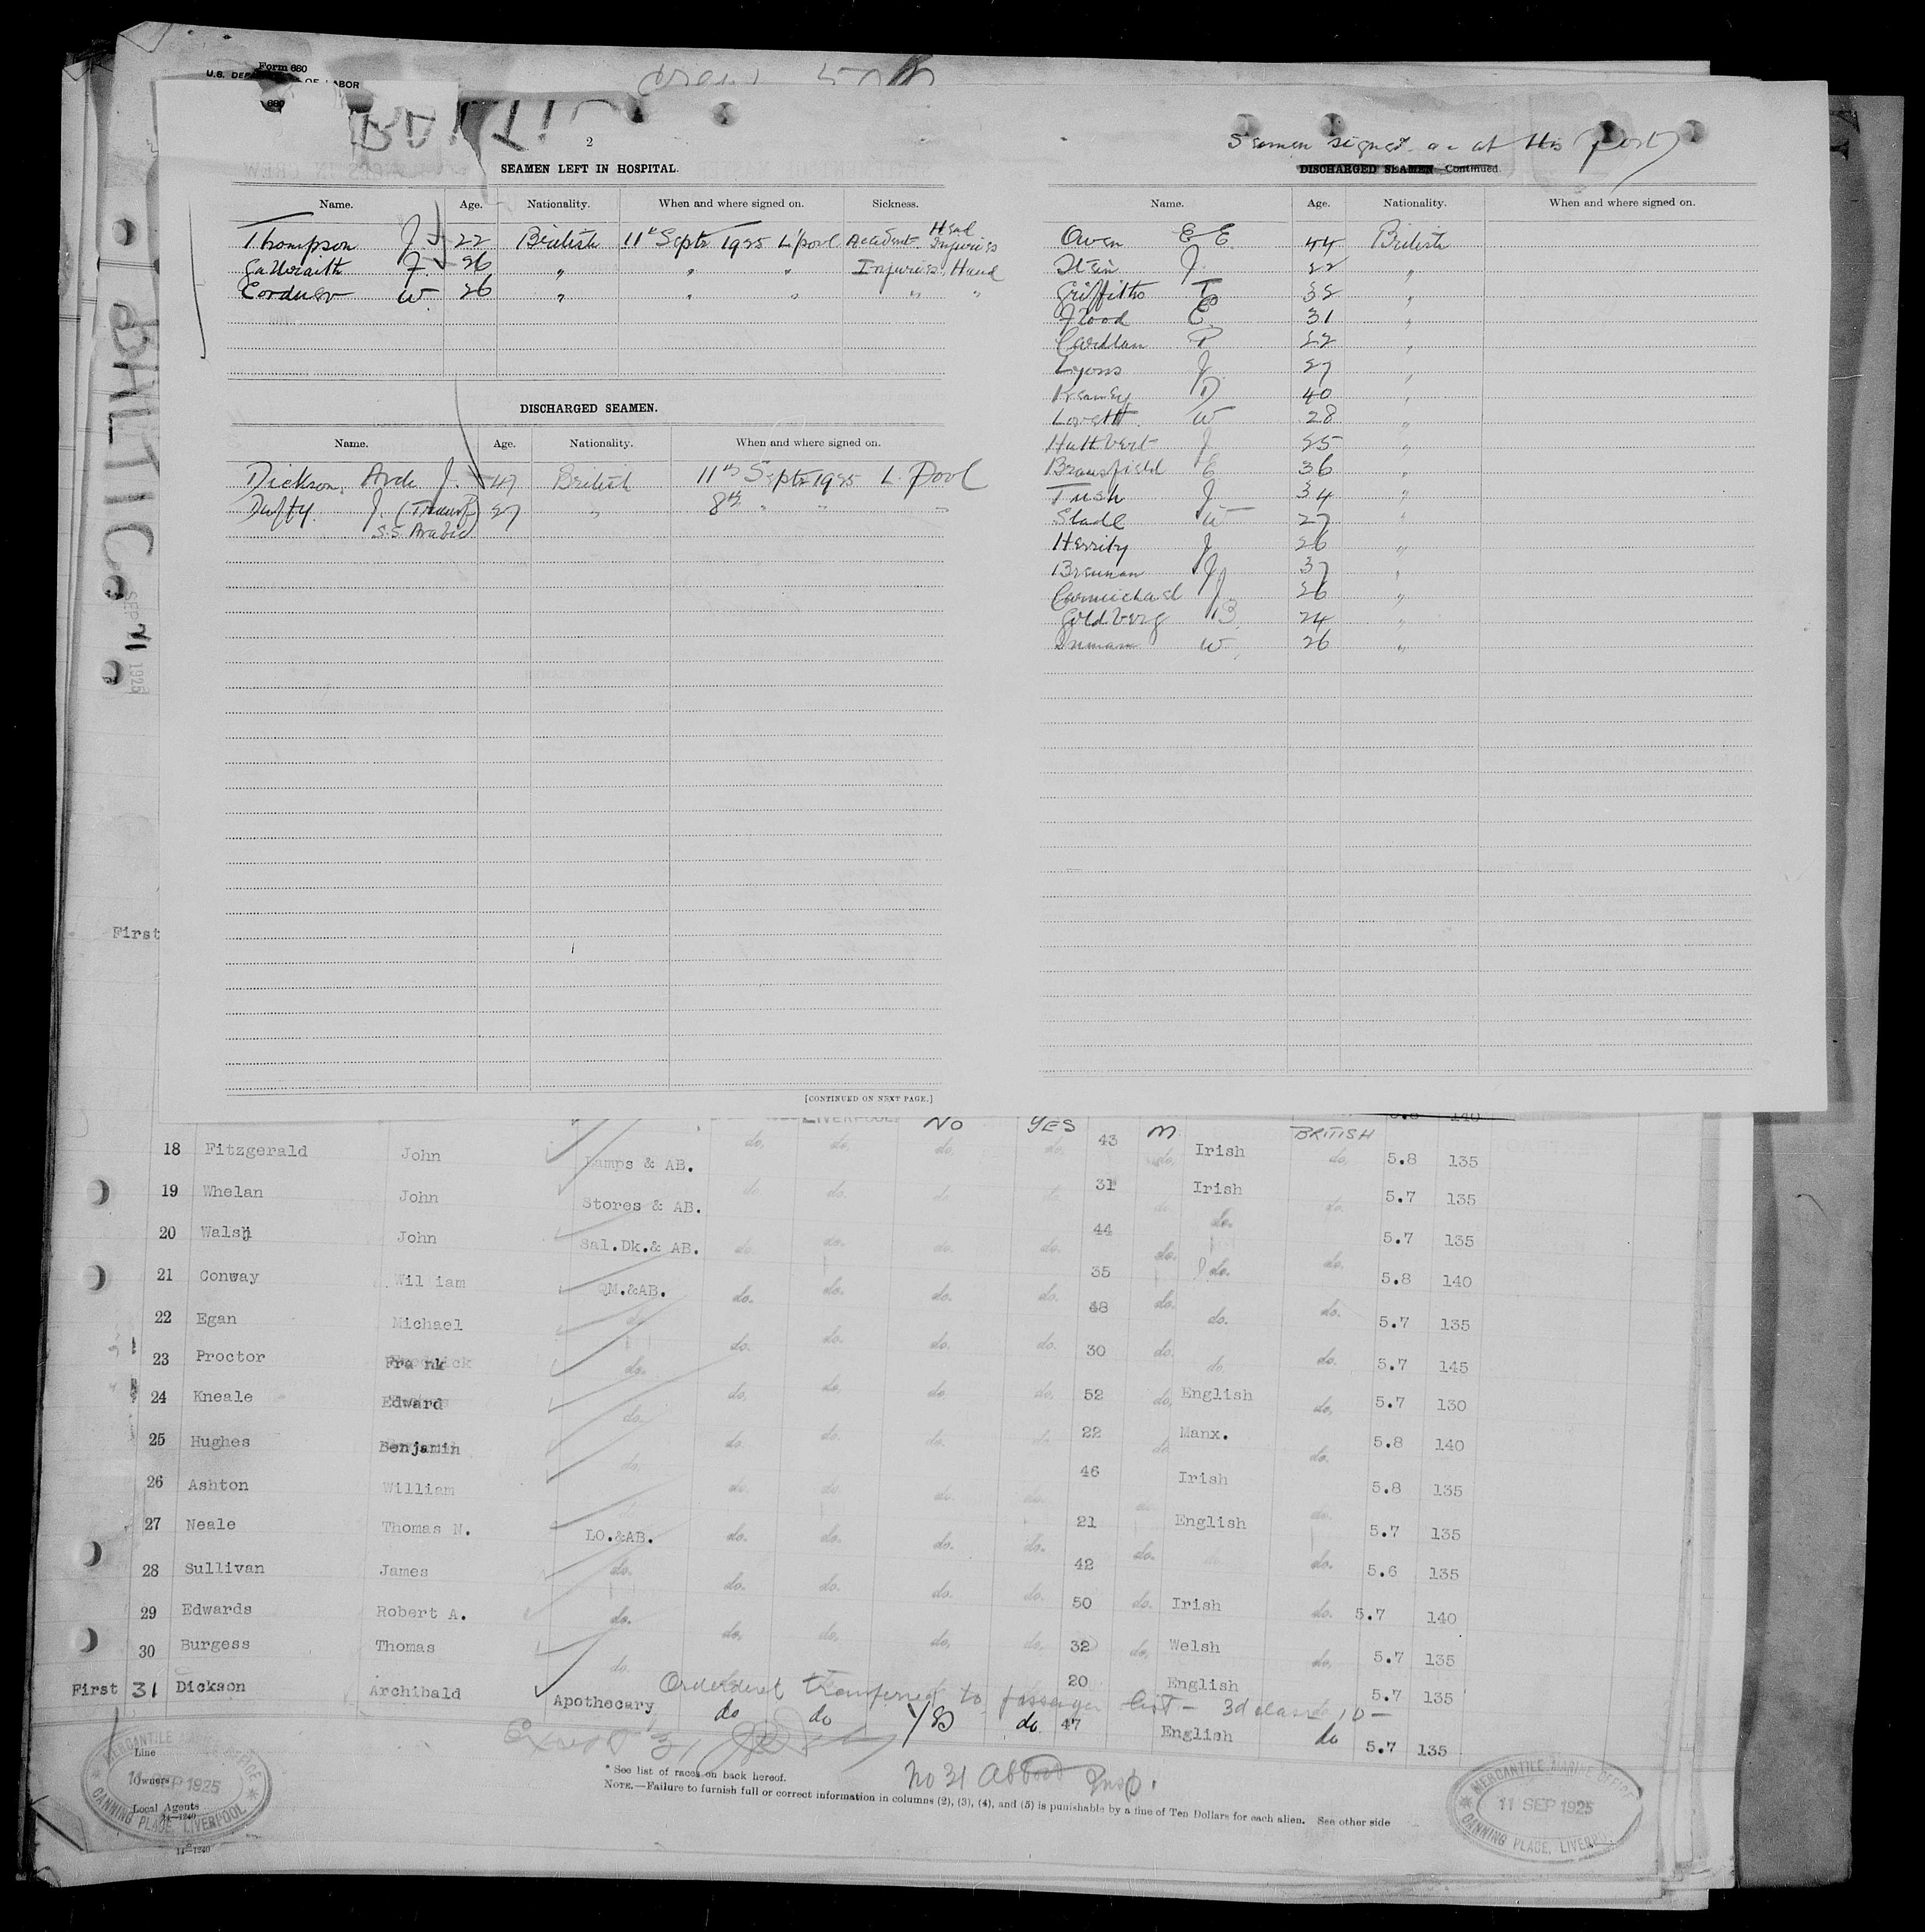 Form 680
U.S. DEPARTMENT OF LABOR
680
BALTIC
SEP 21 1925
2
SEAMEN LEFT IN HOSPITAL.
Name. Age. Nationality. When and where signed on. Sickness.
Thompson J. 22 British 11th Septr 1925 L'pool Accident Head Injuries
Galbraith J. 26 " " " Injuries Hand
Corduer W. 26 " " " " "
DISCHARGED SEAMEN.
Name. Age. Nationality. When and where signed on.
Dickson, Arch. J. 47 British 11th Septr 1925 L. Pool
Duffy. J. (Transf) 27 " 8th " " "
S.S. Arabic
[CONTINUED ON NEXT PAGE.]
Seamen signed on at this port
DISCHARGED SEAMEN—Continued.
Name. Age. Nationality. When and where signed on.
Owen E E 44 British
Stein J. 22 "
Griffiths T 32 "
Flood E. 31 "
P 22 "
Lyons J. 27 "
Kearney D 40 "
Lovett W 28 "
Huthbert J 25 "
Bransfield E 36 "
Tush J 34 "
Slade W 27 "
Herrity J 26 "
Brennan J 37 "
Carmichael J. 26 "
Goldberg B. 24 "
Inman W. 26 "
First
LIVERPOOL NO YES M BRITISH 5.8 140
18 Fitzgerald John Lamps & AB. do. do. do. do. 43 do. Irish do. 5.8 135
19 Whelan John Stores & AB. do do. do do. 31 do. Irish do. 5.7 135
20 Walsh John Sal.Dk.& AB. do. do. do. do. 44 do. do. do. 5.7 135
21 Conway William QM.&AB. do. do. do. do. 35 do. do. do. 5.8 140
22 Egan Michael do. do. do. do. do. 48 do. do. do. 5.7 135
23 Proctor Frank do. do. do. do. do. 30 do. do do. 5.7 145
24 Kneale Edward do. do. do. do. do. 52 do. English do. 5.7 130
25 Hughes Benjamin do. do. do. do. do. 22 do. Manx. do. 5.8 140
26 Ashton William do. do. do. do. do. 46 do. Irish do. 5.8 135
27 Neale Thomas N. LO.&AB. do. do. do. do. 21 do. English do. 5.7 135
28 Sullivan James do. do. do. do. do. 42 do. do. 5.6 135
29 Edwards Robert A. do. do. do. do. do. 50 do. Irish do. 5.7 140
30 Burgess Thomas do. 32 do. Welsh do. 5.7 135
20 English 5.7 135
Ordered transferred to passenger list - 3d class 10 -
First 31 Dickson Archibald Apothecary do do Yes do. 47 English do 5.7 135
Except 31
No 31 Insp.
Line
Owners
Local Agents
14—1240
14—1240
MERCANTILE MARINE OFFICE
11 SEP 1925
CANNING PLACE, LIVERPOOL
* See list of races on back hereof.
NOTE.—Failure to furnish full or correct information in columns (2), (3), (4), and (5) is punishable by a fine of Ten Dollars for each alien. See other side
MERCANTILE MARINE OFFICE
11 SEP 1925
CANNING PLACE, LIVERPOOL